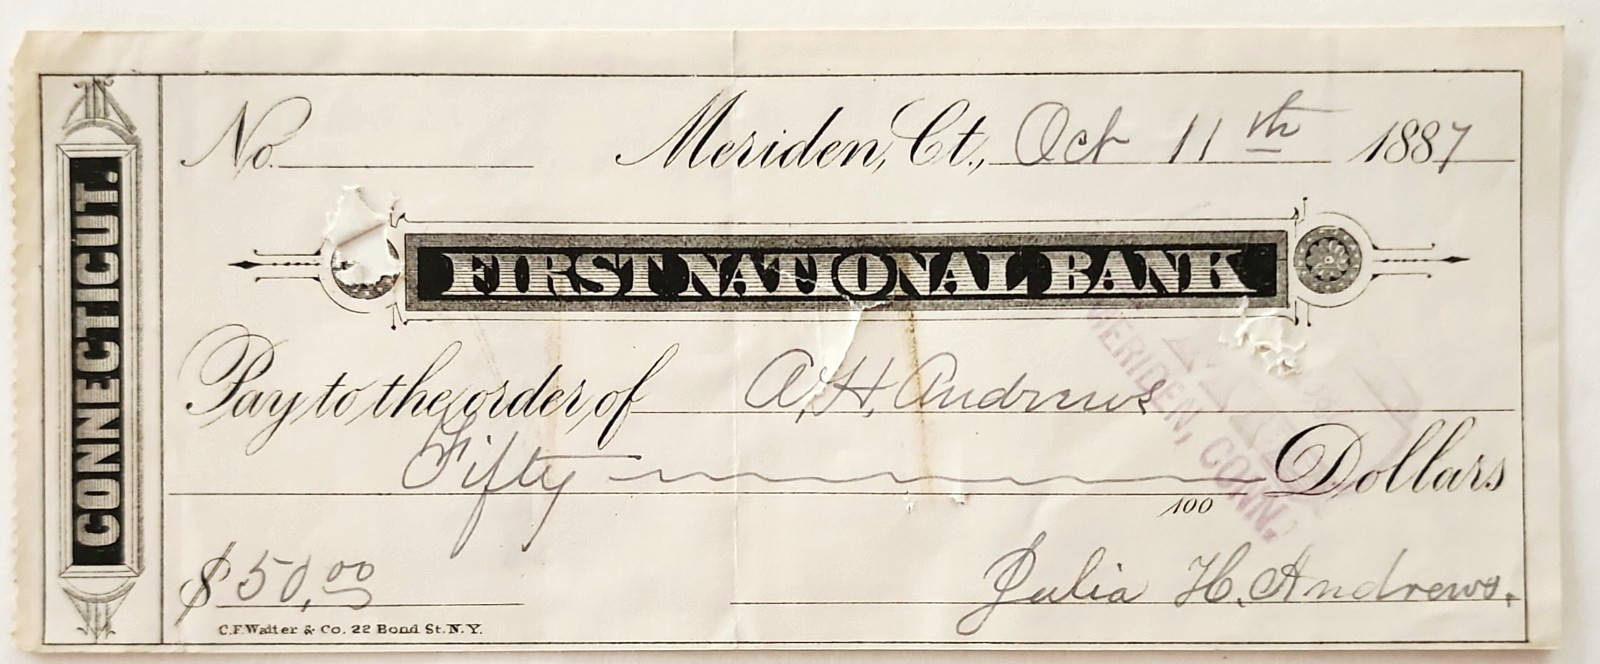 CONNECTICUT.
No. Meriden, Ct., Oct 11th 1887
FIRST NATIONAL BANK
Pay to the order of A. H. Andrews
Fifty 100 Dollars
$50.00 Julia H. Andrews.
C.F. Walter & Co. 22 Bond St. N.Y.
MERIDEN, CONN.